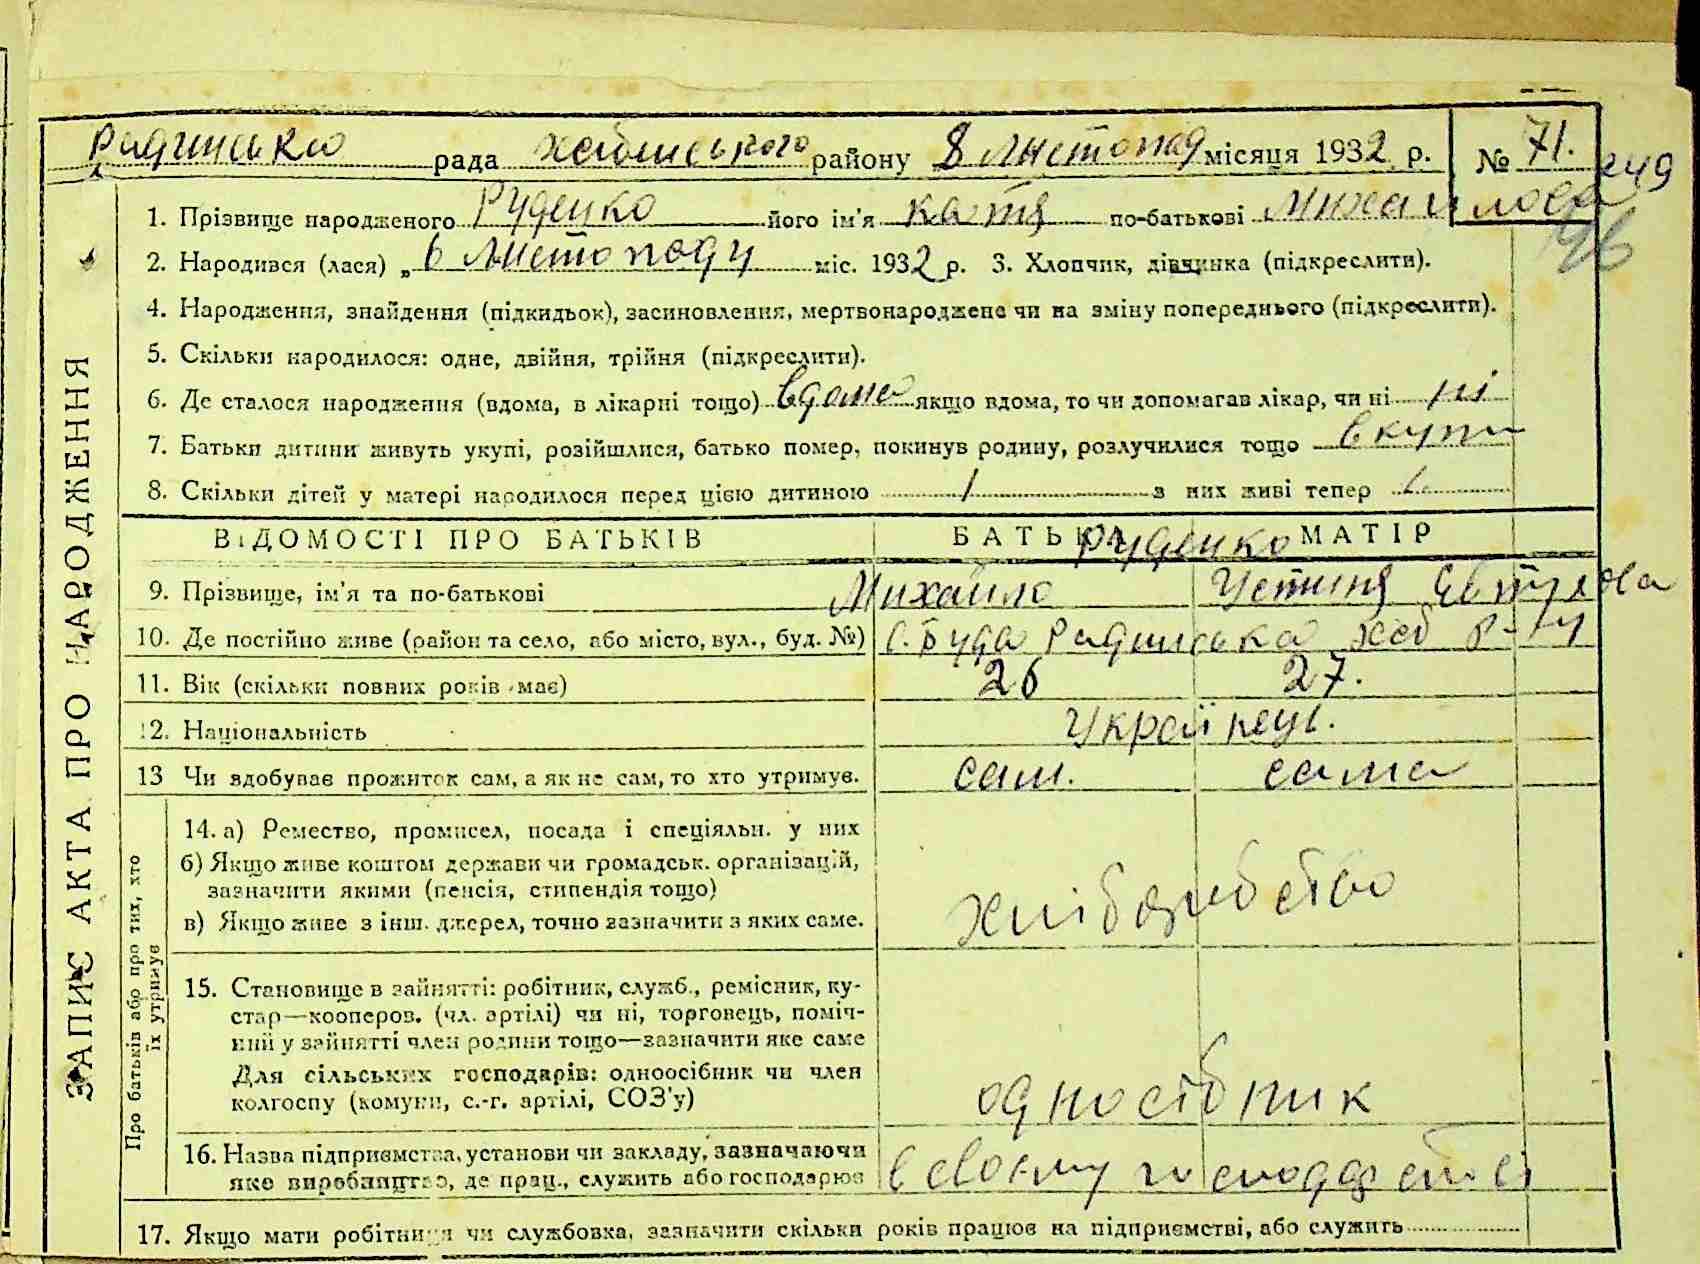 Радинська рада Хабенського району 8 листопад місяця 1932 р. № 71.
249
1. Прізвище народженого Руденко його ім'я Катя по-батькові Михайлова
96
2. Народився (лася) „ 6 листопаду міс. 1932 р. 3. Хлопчик, дівчинка (підкреслити).
4. Народження, знайдення (підкидьок), засиновлення, мертвонароджене чи на зміну попереднього (підкреслити).
5. Скільки народилося: одне, двійня, трійня (підкреслити).
6. Де сталося народження (вдома, в лікарні тощо) вдома якщо вдома, то чи допомагав лікар, чи ні ні
7. Батьки дитини живуть укупі, розійшлися, батько помер, покинув родину, розлучилися тощо вкупи
8. Скільки дітей у матері народилося перед цією дитиною 1 з них живі тепер 1
ЗАПИС АКТА ПРО НАРОДЖЕННЯ
ВІДОМОСТІ ПРО БАТЬКІВ БАТЬКА МАТІР
Руденко
9. Прізвище, ім'я та по-батькові Михайло Устиня Євтухова
10. Де постійно живе (район та село, або місто, вул., буд. №) с. Буда Радинська Хаб р-ну
11. Вік (скільки повних років має) 26 27.
12. Національність Українці.
13 Чи здобуває прожиток сам, а як не сам, то хто утримує. сам. сама
Про батьків або про тих, хто
їх утримує
14. а) Ремество, промисел, посада і спеціяльн. у них
б) Якщо живе коштом держави чи громадськ. організацій,
зазначити якими (пенсія, стипендія тощо)
в) Якщо живе з інш. джерел, точно зазначити з яких саме.
хліборобство
15. Становище в зайнятті: робітник, служб., ремісник, ку-
стар—кооперов. (чл. артілі) чи ні, торговець, поміч-
ний у зайнятті член родини тощо—зазначити яке саме
Для сільських господарів: одноосібник чи член
колгоспу (комуни, с.-г. артілі, СОЗ'у)
одноосібник
16. Назва підприємства, установи чи закладу, зазначаючи
яке виробництво, де прац., служить або господарює
в своєму господарстві
17. Якщо мати робітниця чи службовка, зазначити скільки років працює на підприємстві, або служить